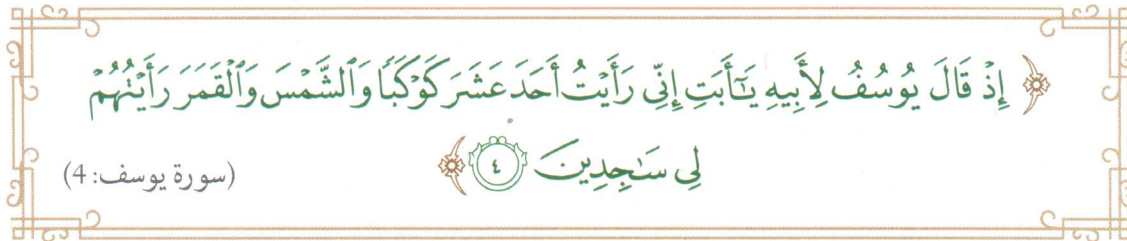 ﴿ إِذْ قَالَ يُوسُفُ لِأَبِيهِ يَٰٓأَبَتِ إِنِّي رَأَيْتُ أَحَدَ عَشَرَ كَوْكَبٗا وَٱلشَّمْسَ وَٱلْقَمَرَ رَأَيْتُهُمْ
لِي سَٰجِدِينَ ٤ ﴾ (سورة يوسف: 4)